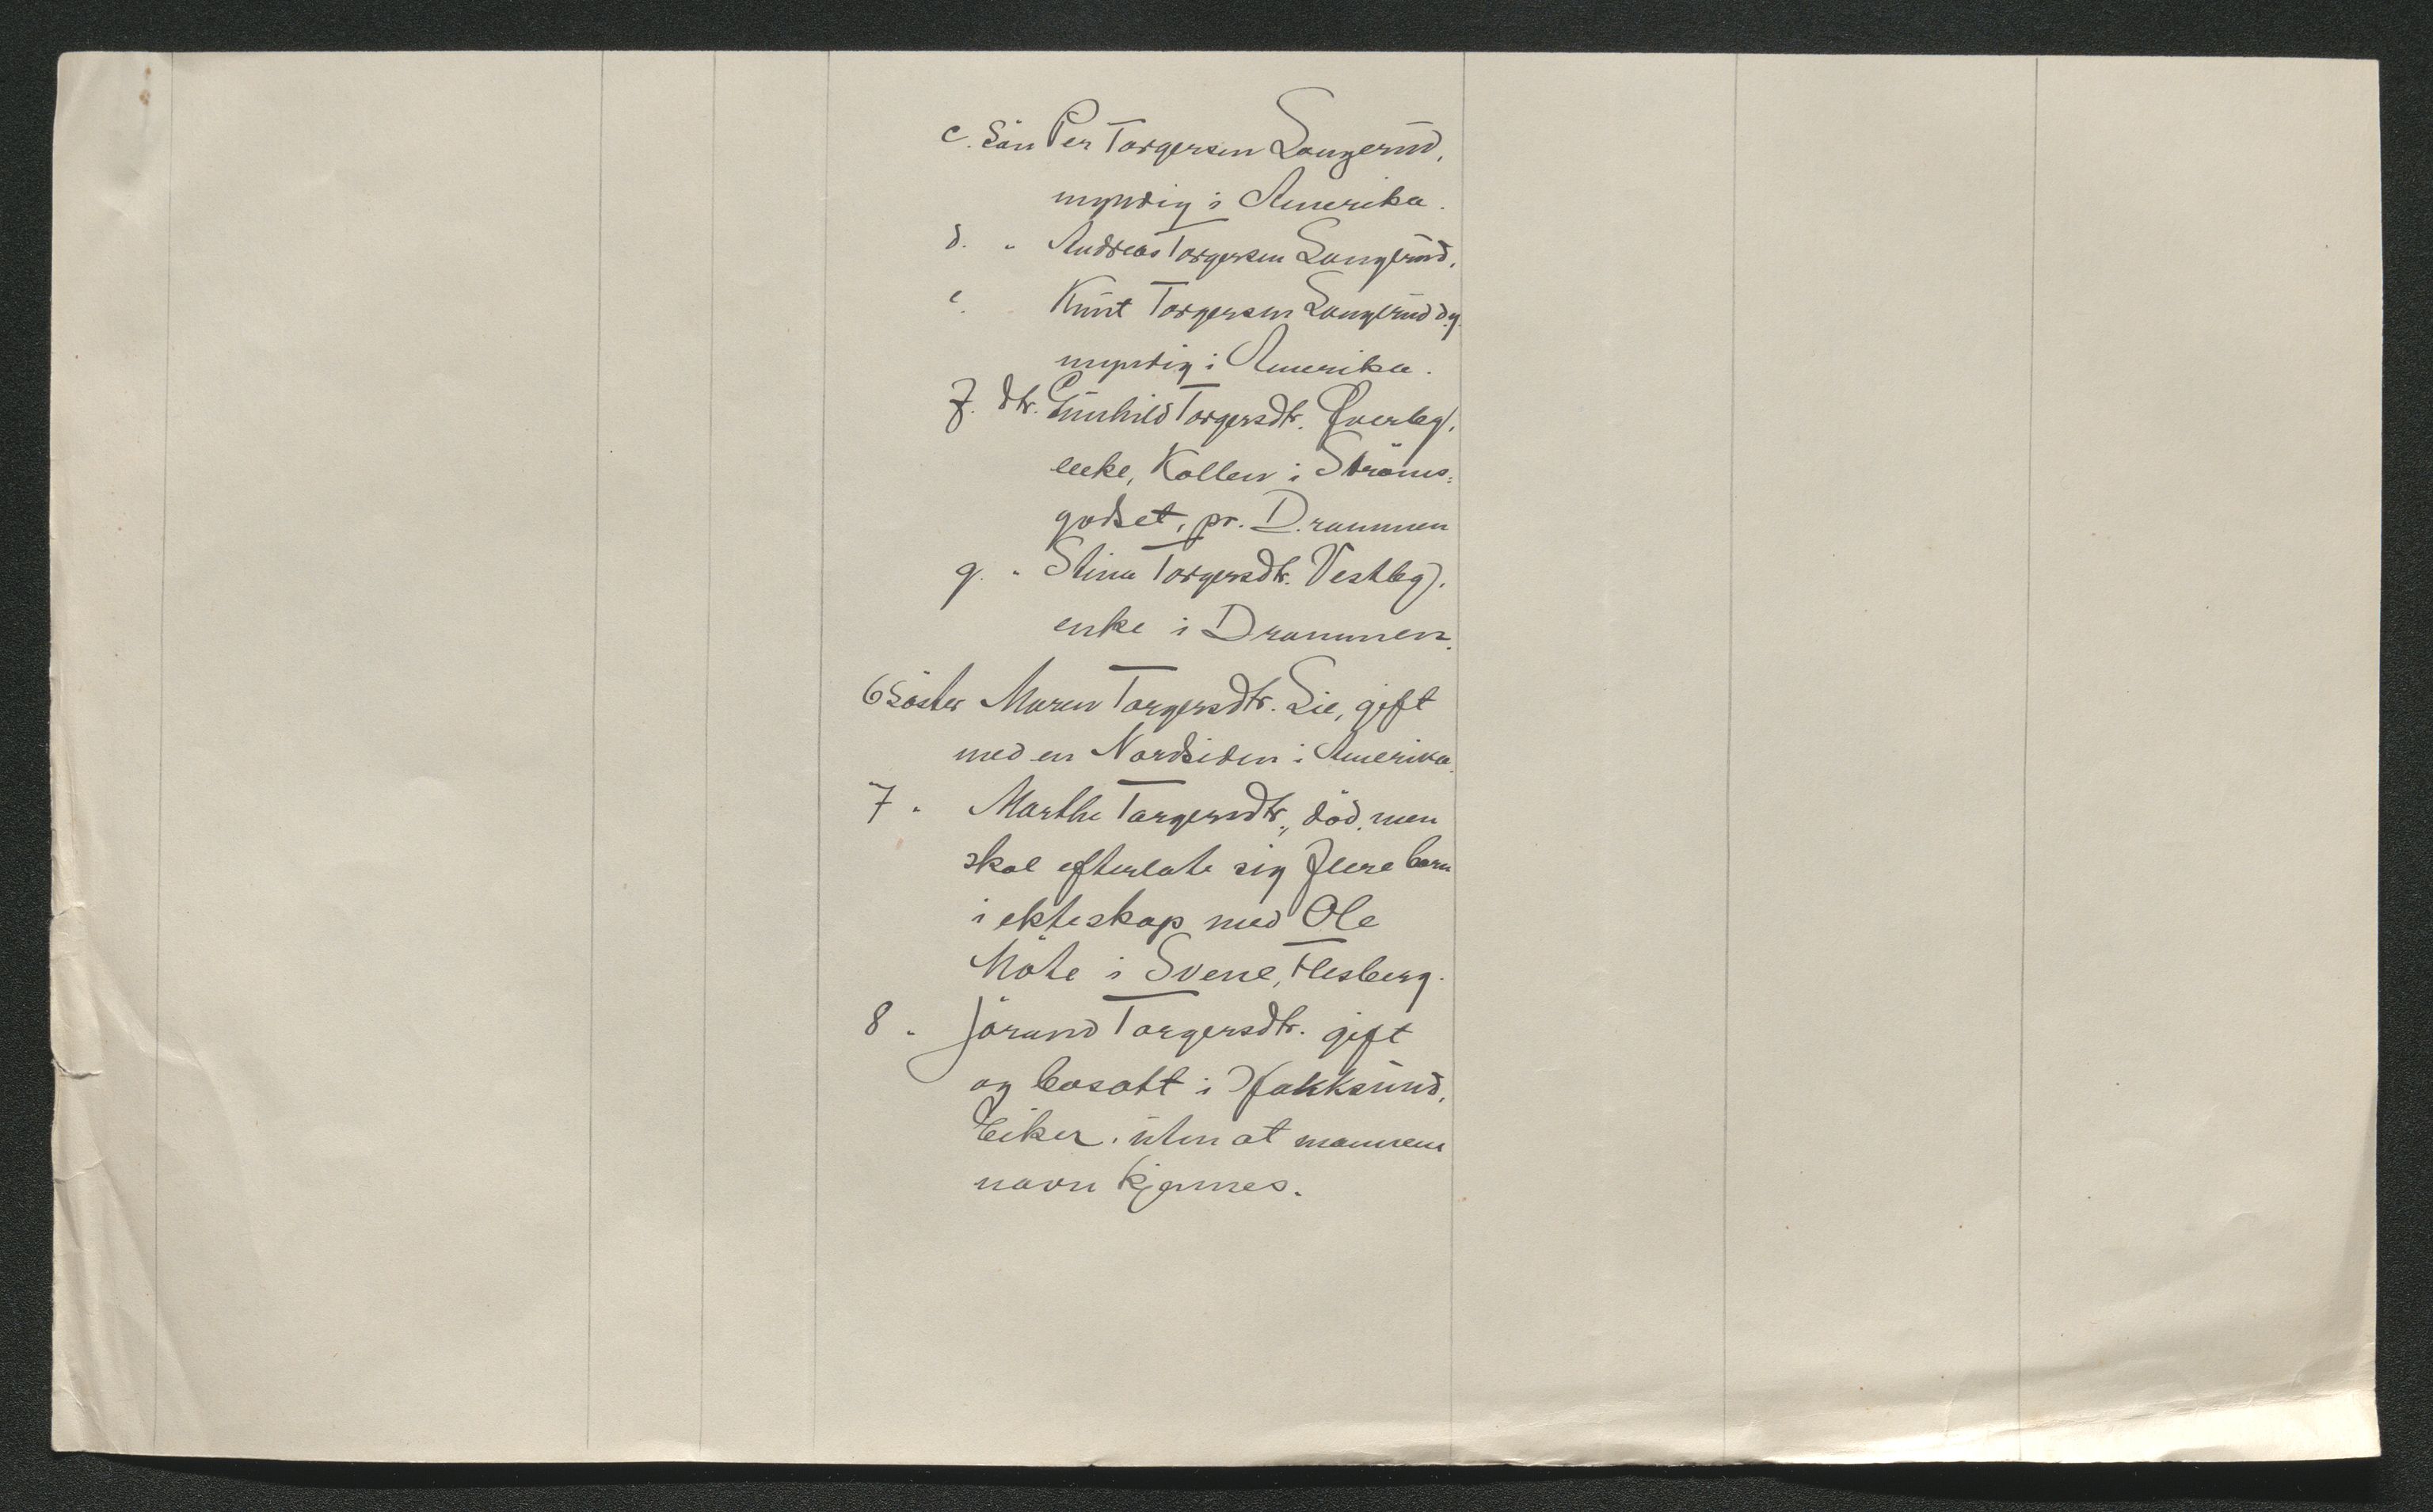 c. Sön Per Torgersen Langerud,
myndig i Amerika.
d. " Andreas Torgersen Langerud,
e. Knut Torgersen Langerud d.y.
myndig i Amerika.
f. dtr. Gunhild Torgersdtr. Överby,
enke, Kollen i Ströms=
godset, pr. Drammen
g. " Stina Torgersdtr. Vestby,
enke i Drammen.
6 Söster Maren Torgersdtr. Lie, gift
med en Nordsiden i Amerika.
7 " Marthe Torgersdtr., död, men
skal efterlate sig flere barn
i ekteskap med Ole
Möte i Svene, Flesberg.
8 " Jörand Torgersdtr. gift
og bosatt i Hakksund,
Eiker, uten at mannens
navn kjennes.